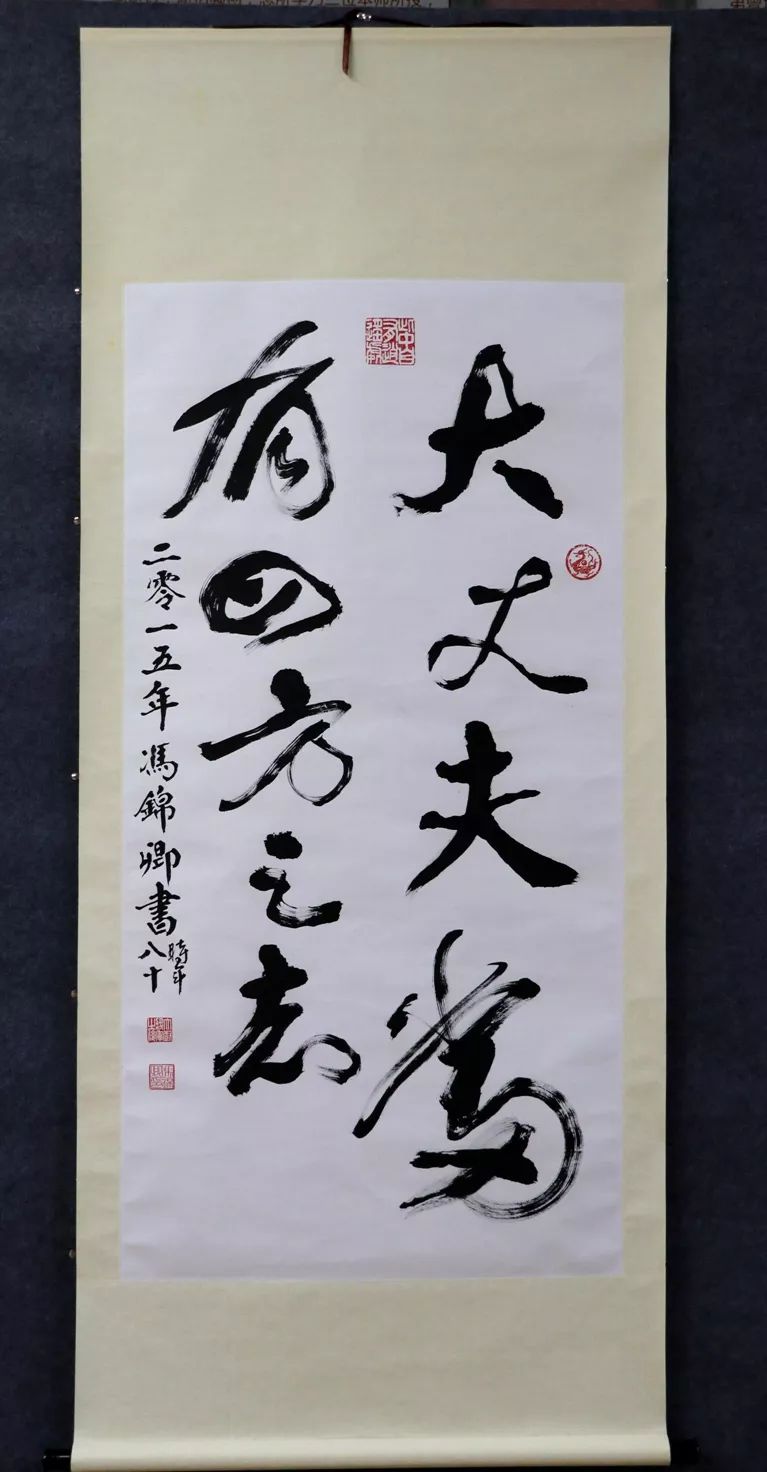 大丈夫當
有四方之志
二零一五年馮錦卿書
時年
八十